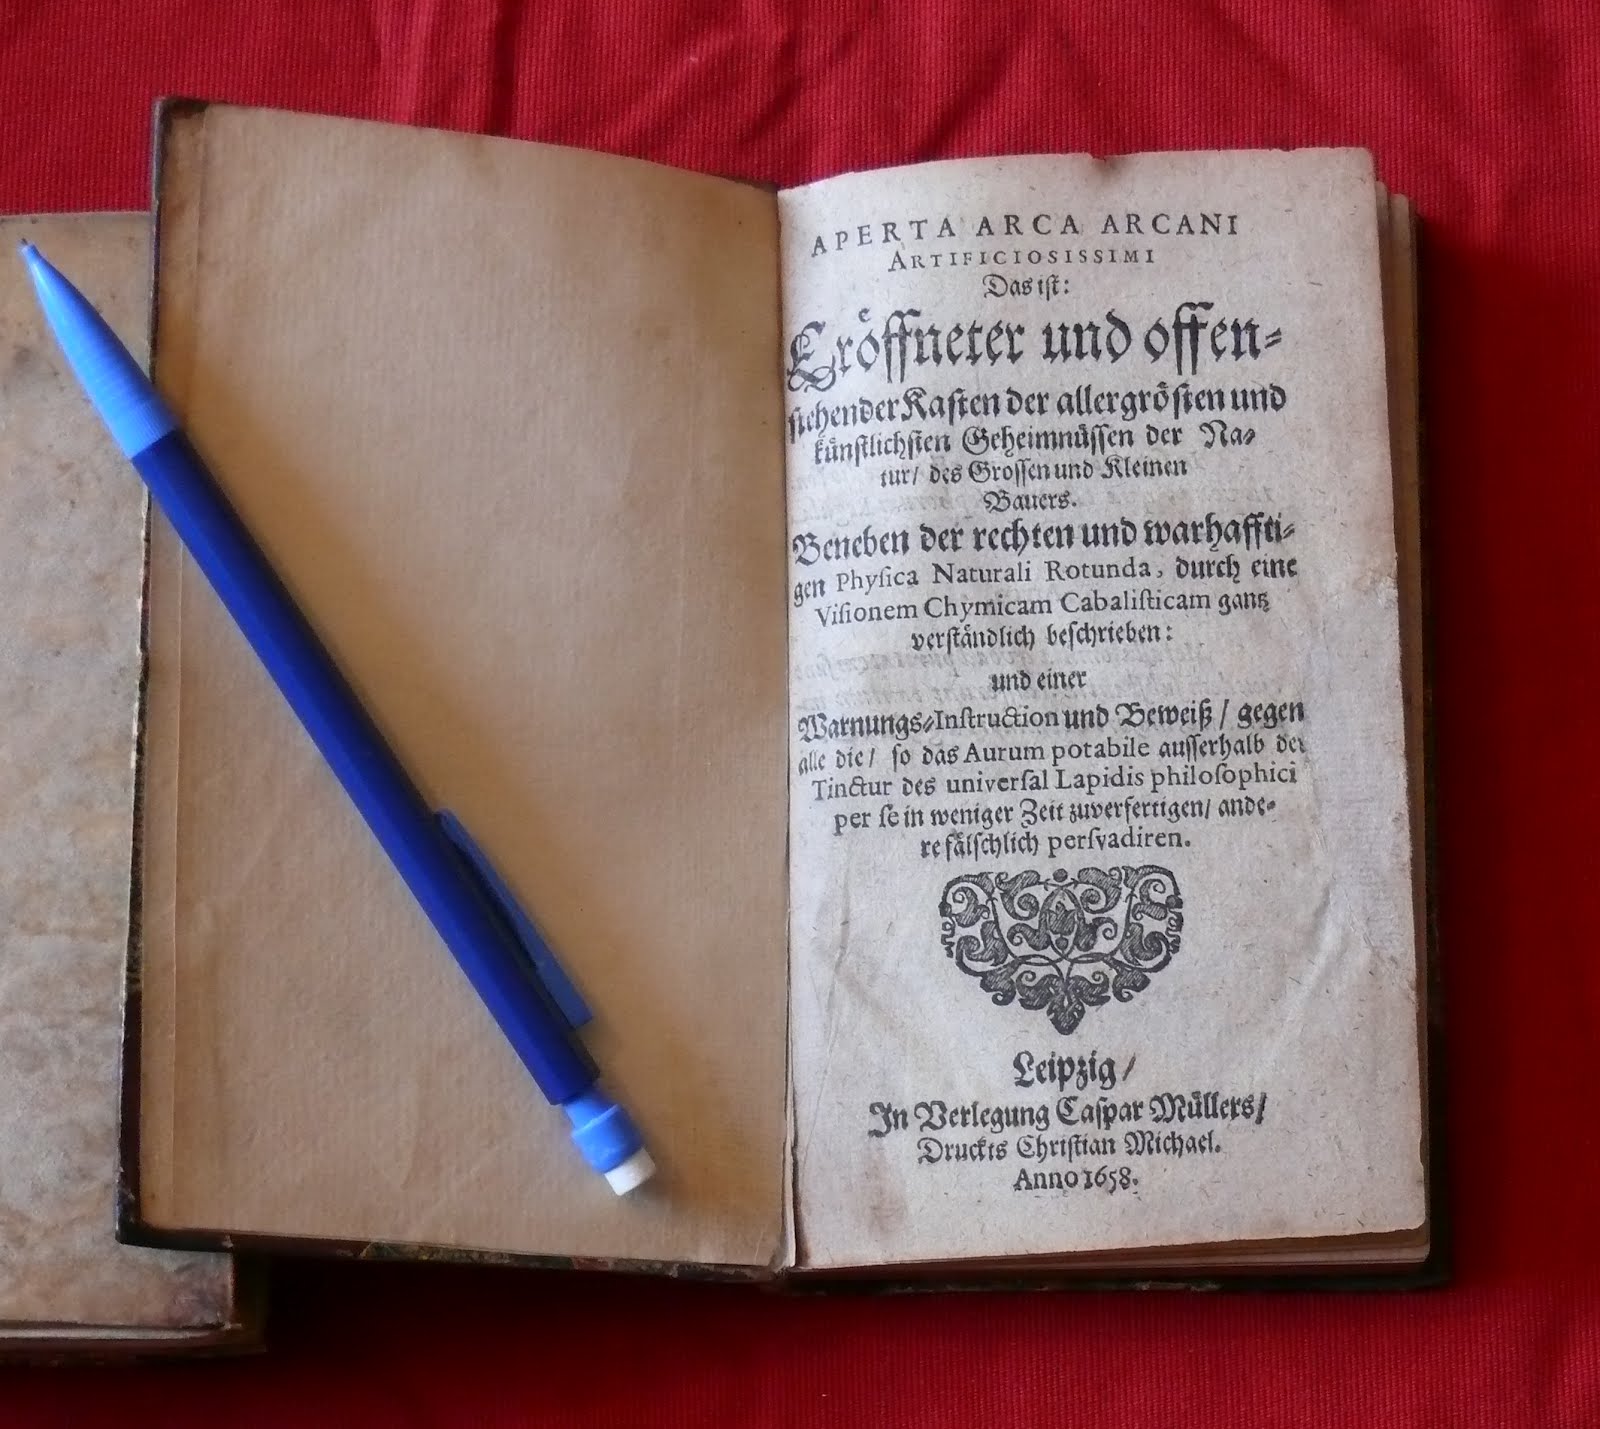 APERTA ARCA ARCANI
ARTIFICIOSISSIMI
Das iſt:
Eroͤffneter und offen⸗
ſtehender Kaſten der allergroͤſten und
kuͤnſtlichſten Geheimnuͤſſen der Na⸗
tur/ des Groſſen und Kleinen
Bauers.
Beneben der rechten und warhaffti⸗
gen Phyſica Naturali Rotunda, durch eine
Viſionem Chymicam Cabaliſticam gantz
verſtaͤndlich beſchrieben:
und einer
Warnungs⸗Inſtruction und Beweiß / gegen
alle die/ ſo das Aurum potabile auſſerhalb der
Tinctur des univerſal Lapidis philoſophici
per ſe in weniger Zeit zuverfertigen/ ande⸗
re faͤlſchlich perſvadiren.
Leipzig/
In Verlegung Caſpar Muͤllers/
Druckts Chriſtian Michael.
Anno 1658.